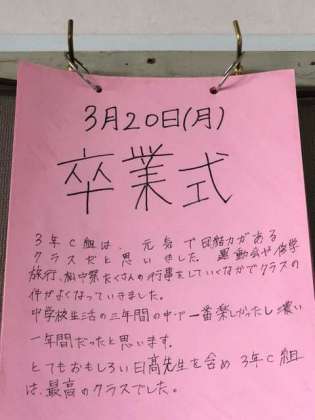 3月20日(月)
卒業式
3年C組は、元気で団結力がある
クラスだと思いました。運動会や修学
旅行、たくさんの行事をしていくなかでクラスの
仲がよくなっていきました。
中学校生活の三年間の中で一番楽しかったし、濃い
一年間だったと思います。
とてもおもしろい日高先生を含め3年C組
は、最高のクラスでした。